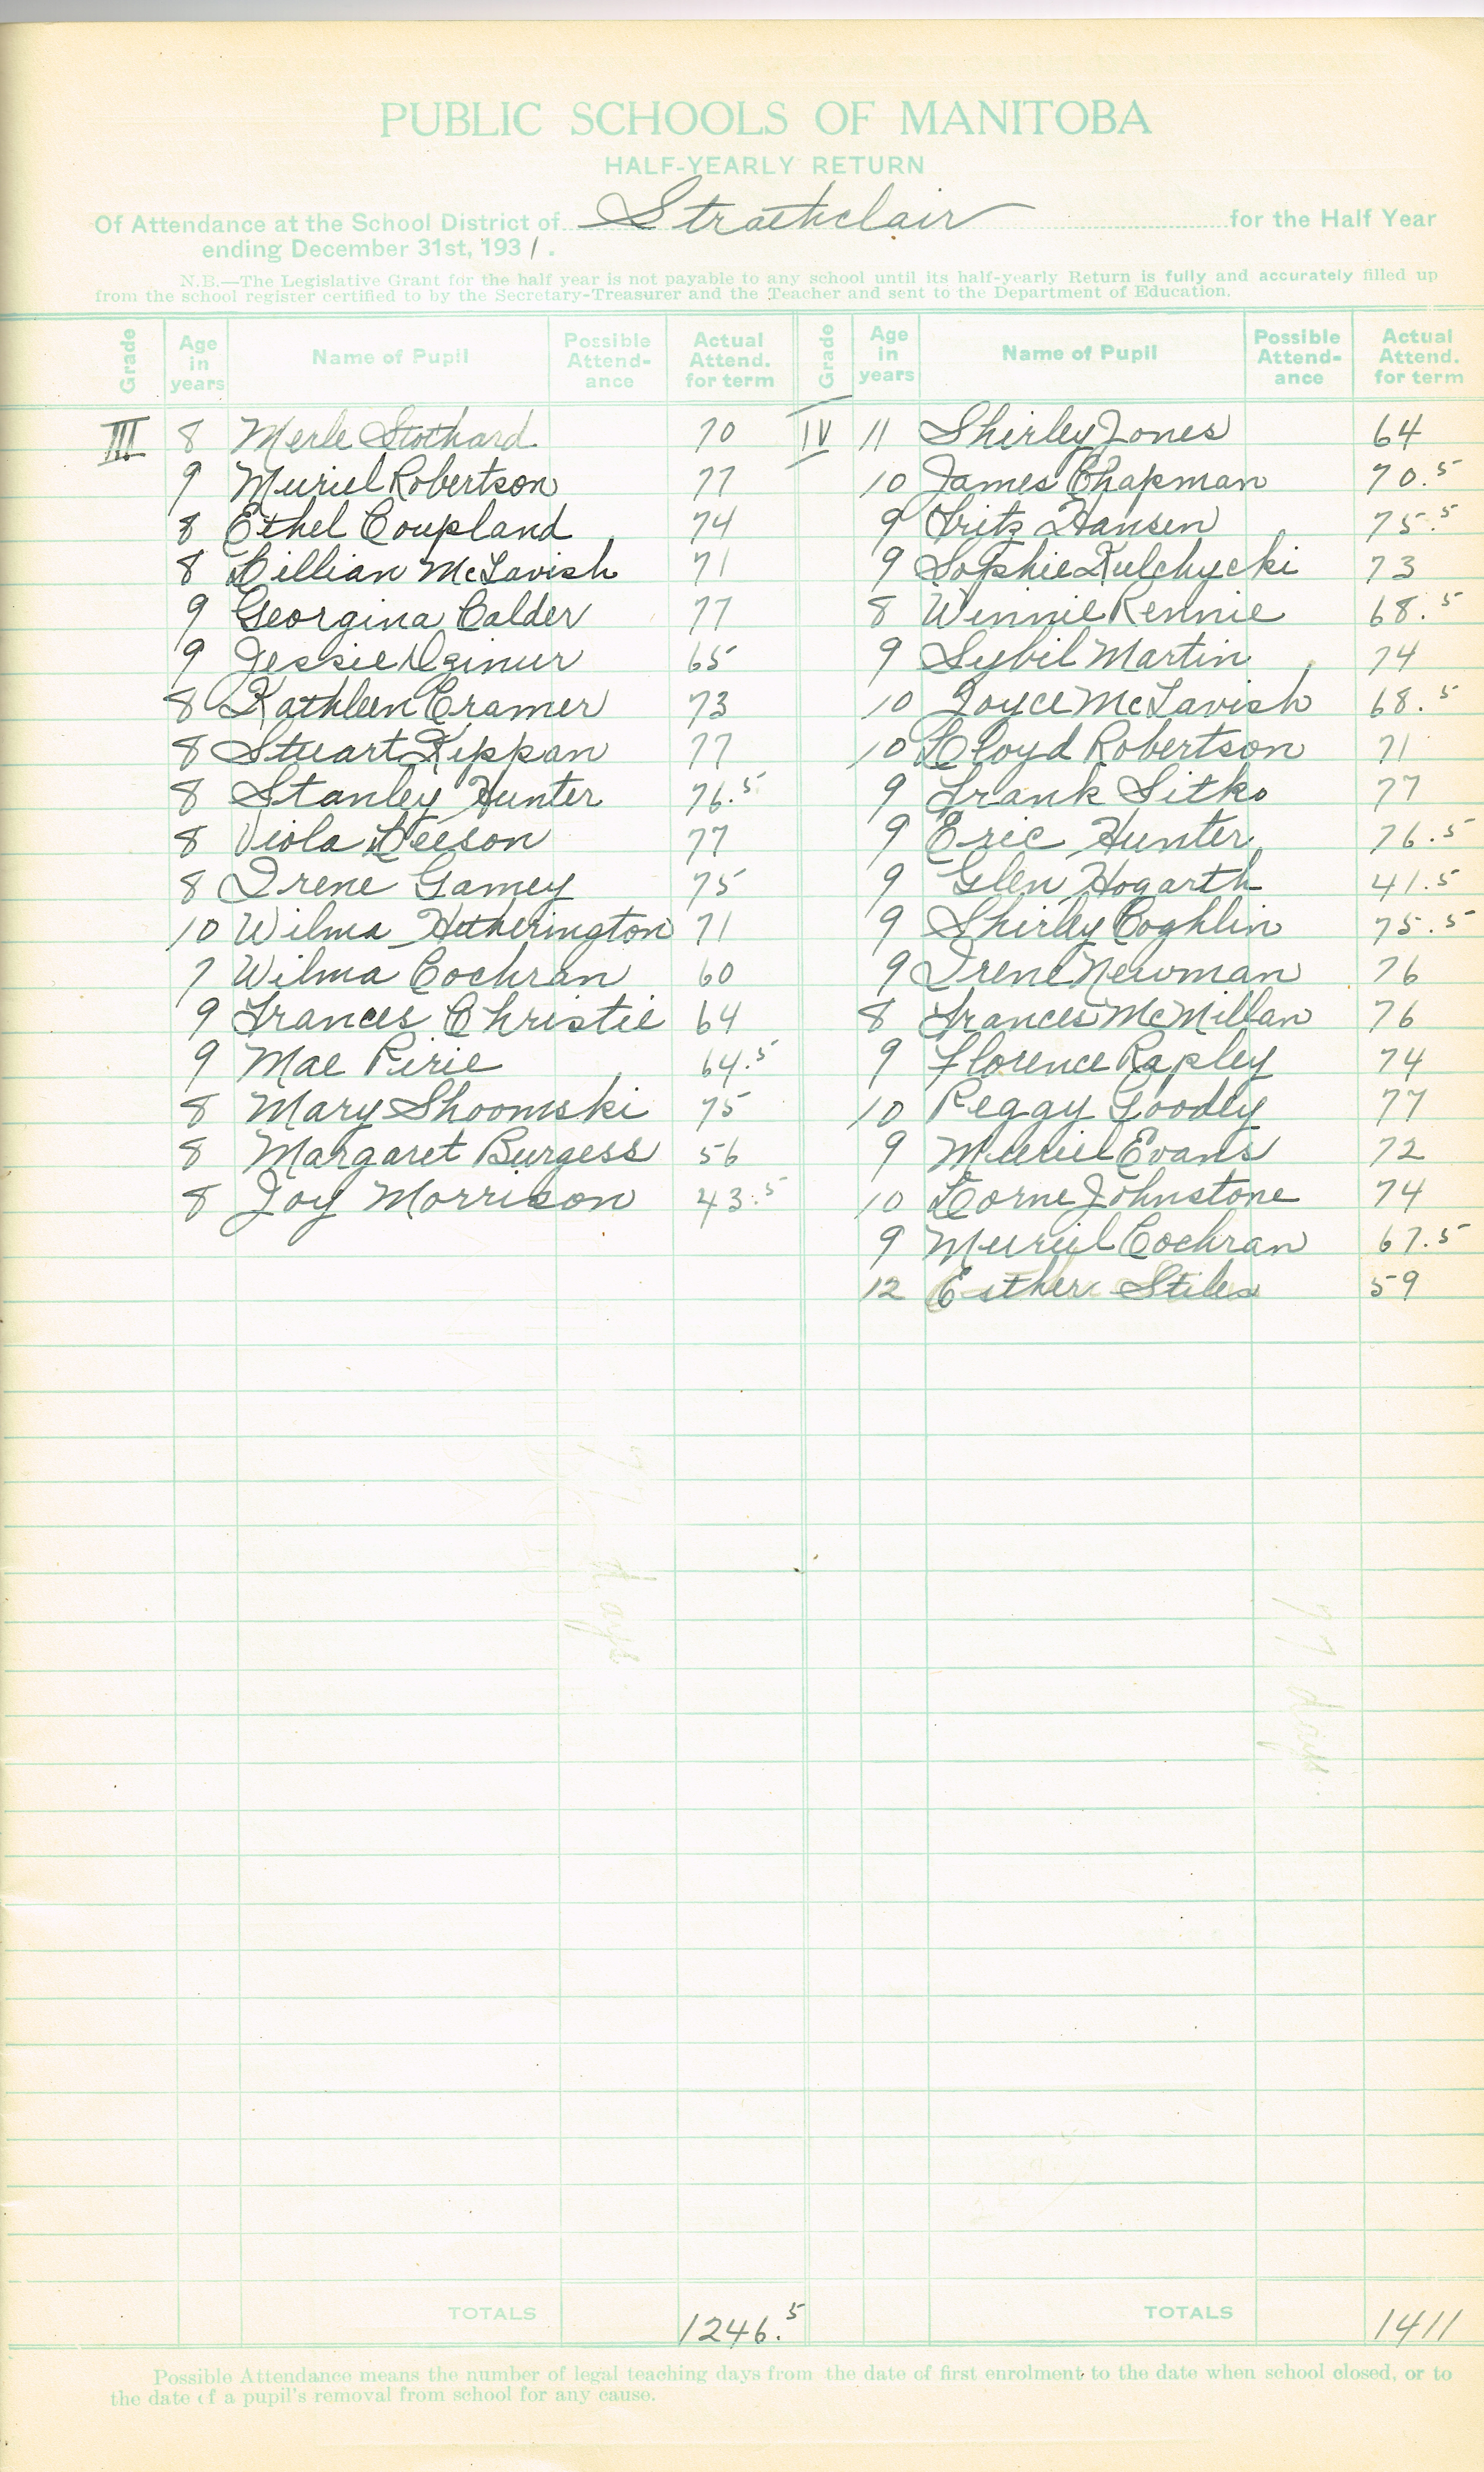 PUBLIC SCHOOLS OF MANITOBA
HALF-YEARLY RETURN
Of Attendance at the School District of Strathclair for the Half Year
ending December 31st, 1931.
N.B.—The Legislative Grant for the half year is not payable to any school until its half-yearly Return is fully and accurately filled up
from the school register certified to by the Secretary-Treasurer and the Teacher and sent to the Department of Education.
Grade Age in years Name of Pupil Possible Attend-ance Actual Attend. for term Grade Age in years Name of Pupil Possible Attend-ance Actual Attend. for term
III 8 Merle Stothard 70 IV 11 Shirley Jones 64
9 Muriel Robertson 77 10 James Chapman 70.5
8 Ethel Coupland 74 9 Fritz Hansen 75.5
8 Lillian McTavish 71 9 Sophie Kulchycki 73
9 Georgina Calder 77 8 Winnie Rennie 68.5
9 Jessie 65 9 Sybil Martin 74
8 Kathleen Cramer 73 10 Joyce McTavish 68.5
8 Stuart Kippan 77 10 Lloyd Robertson 71
8 Stanley Hunter 76.5 9 Frank Sitko 77
8 Viola Leeson 77 9 Eric Hunter 76.5
8 Irene Gamey 75 9 Glen Hogarth 41.5
10 Wilma Hetherington 71 9 Shirley Coghlin 75.5
7 Wilma Cochran 60 9 Irene Newman 76
9 Frances Christie 64 8 Frances McMillan 76
9 Mae Pirie 64.5 9 Florence Rapley 74
8 Mary Shoomski 75 10 Peggy Goodly 77
8 Margaret Burgess 56 9 Muriel Evans 72
8 Joy Morrison 43.5 10 Lorne Johnstone 74
9 Muriel Cochran 67.5
12 Esther Stiles 59
TOTALS 1246.5 TOTALS 1411
Possible Attendance means the number of legal teaching days from the date of first enrolment to the date when school closed, or to
the date of a pupil's removal from school for any cause.